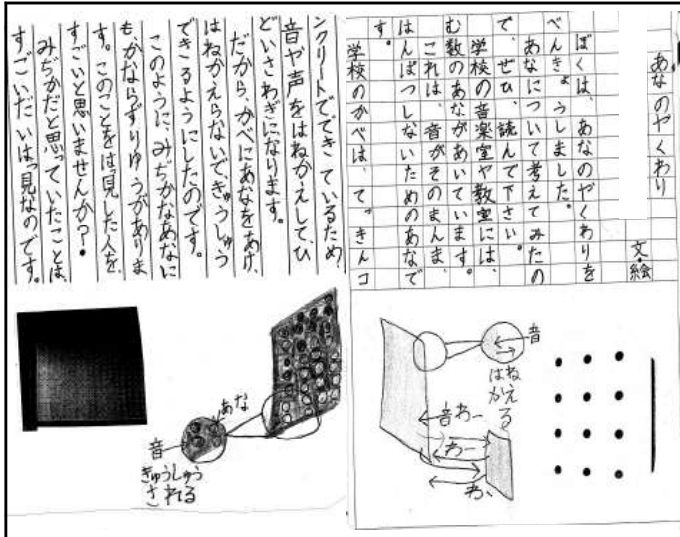 あなのやくわり
文・絵
ぼくは、あなのやくわりを
べんきょうしました。
あなについて考えてみたの
で、ぜひ、読んで下さい。
学校の音楽室や教室には、
む数のあながあいています。
これは、音がそのまんま、
はんぱつしないためのあなで
す。
学校のかべは、てっきんコ
音
はね
かえる
音わー
わー
わ、
ンクリートでできているため、
音や声をはねかえして、ひ
どいさわぎになります。
だから、かべにあなをあけ、
はねかえらないで、きゅうしゅう
できるようにしたのです。
このように、みぢかなあなに
も、かならずりゆうがありま
す。このことをはっ見した人を、
すごいと思いませんか?
みぢかだと思っていたことは、
すごいだいはっ見なのです。
あな
音
きゅうしゅう
される